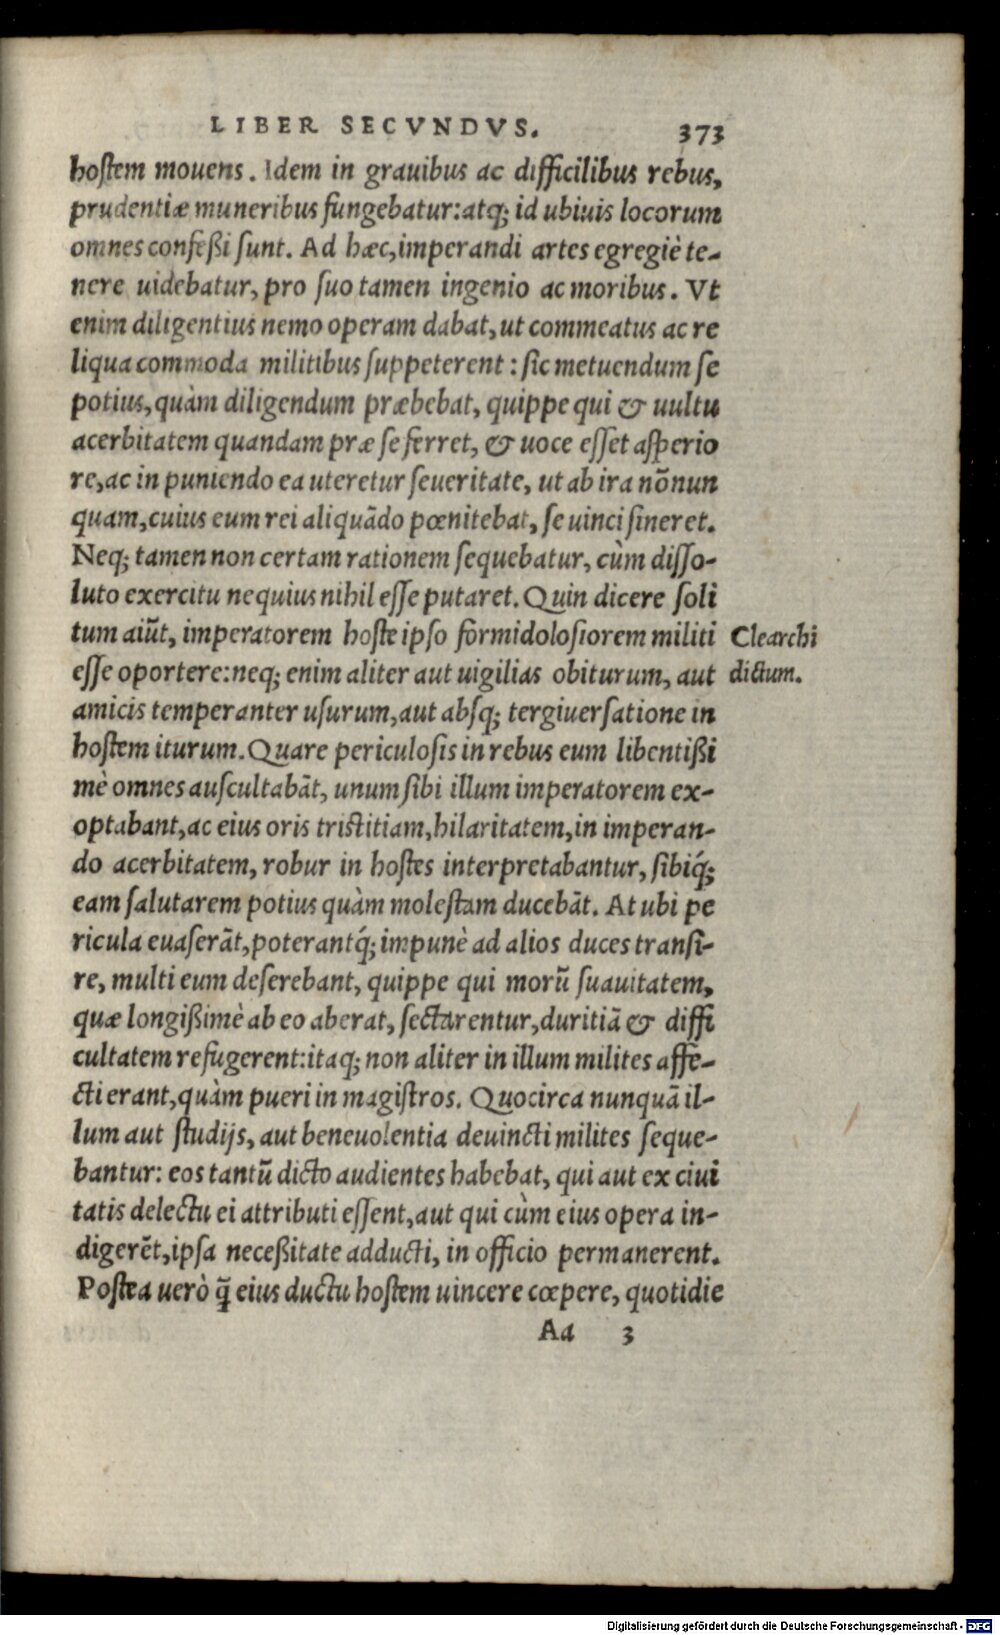 LIBER SECVNDVS. 373
hostem mouens. Idem in grauibus ac difficilibus rebus,
prudentiæ muneribus fungebatur: atq; id ubiuis locorum
omnes confeßi sunt. Ad hæc, imperandi artes egregiè te-
nere uidebatur, pro suo tamen ingenio ac moribus. Vt
enim diligentius nemo operam dabat, ut commeatus ac re
liqua commoda militibus suppeterent: sic metuendum se
potius, quàm diligendum præbebat, quippe qui & uultu
acerbitatem quandam præ se ferret, & uoce esset asperio
re, ac in puniendo ea uteretur seueritate, ut ab ira nõnun
quam, cuius eum rei aliquãdo pœnitebat, se uinci sineret.
Neq; tamen non certam rationem sequebatur, cùm disso-
luto exercitu nequius nihil esse putaret. Quin dicere soli
tum aiũt, imperatorem hoste ipso formidolosiorem militi
Clearchi
esse oportere: neq; enim aliter aut uigilias obiturum, aut
dictum.
amicis temperanter usurum, aut absq; tergiuersatione in
hostem iturum. Quare periculosis in rebus eum libentißi
mè omnes auscultabãt, unum sibi illum imperatorem ex-
optabant, ac eius oris tristitiam, hilaritatem, in imperan-
do acerbitatem, robur in hostes interpretabantur, sibiq́;
eam salutarem potius quàm molestam ducebãt. At ubi pe
ricula euaserãt, poterantq́; impunè ad alios duces transi-
re, multi eum deserebant, quippe qui morũ suauitatem,
quæ longißimè ab eo aberat, sectarentur, duritiã & diffi
cultatem refugerent: itaq; non aliter in illum milites affe-
cti erant, quàm pueri in magistros. Quocirca nunquã il-
lum aut studijs, aut beneuolentia deuincti milites seque-
bantur: eos tantũ dicto audientes habebat, qui aut ex ciui
tatis delectu ei attributi essent, aut qui cùm eius opera in-
digerẽt, ipsa neceßitate adducti, in officio permanerent.
Postea uerò q̃ eius ductu hostem uincere cœpere, quotidie
Aa 3
Digitalisierung gefördert durch die Deutsche Forschungsgemeinschaft - DFG